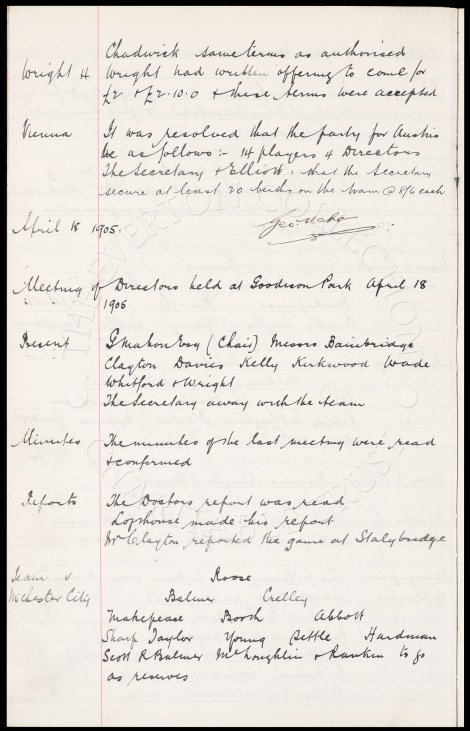 Chadwick same terms as authorised
Wright H Wright had written offering to come for
£2 & £2.10.0 & these terms were accepted
Vienna It was resolved that the party for Austria
be as follows:- 14 players 4 Directors
The Secretary & Elliott: that the Secretary
secure at least 20 berths on the train @ 8/6 each
April 18 1905. Geo. Mahon
Meeting of Directors held at Goodison Park April 18
1905
Present G Mahon Esq (Chair) Messrs Bainbridge
Clayton Davies Kelly Kirkwood Wade
Whitford & Wright
The Secretary away with the team
Minutes The minutes of the last meeting were read
& confirmed
Reports The Doctors report was read
Lofthouse made his report
Mr Clayton reported the game at Stalybridge
Team v Roose
McChester City Balmer Crelley
Makepeace Booth Abbott
Sharp Taylor Young Settle Hardman
Scott R Balmer McLoughlin & Rankin to go
as reserves
THE EVERTON COLLECTION